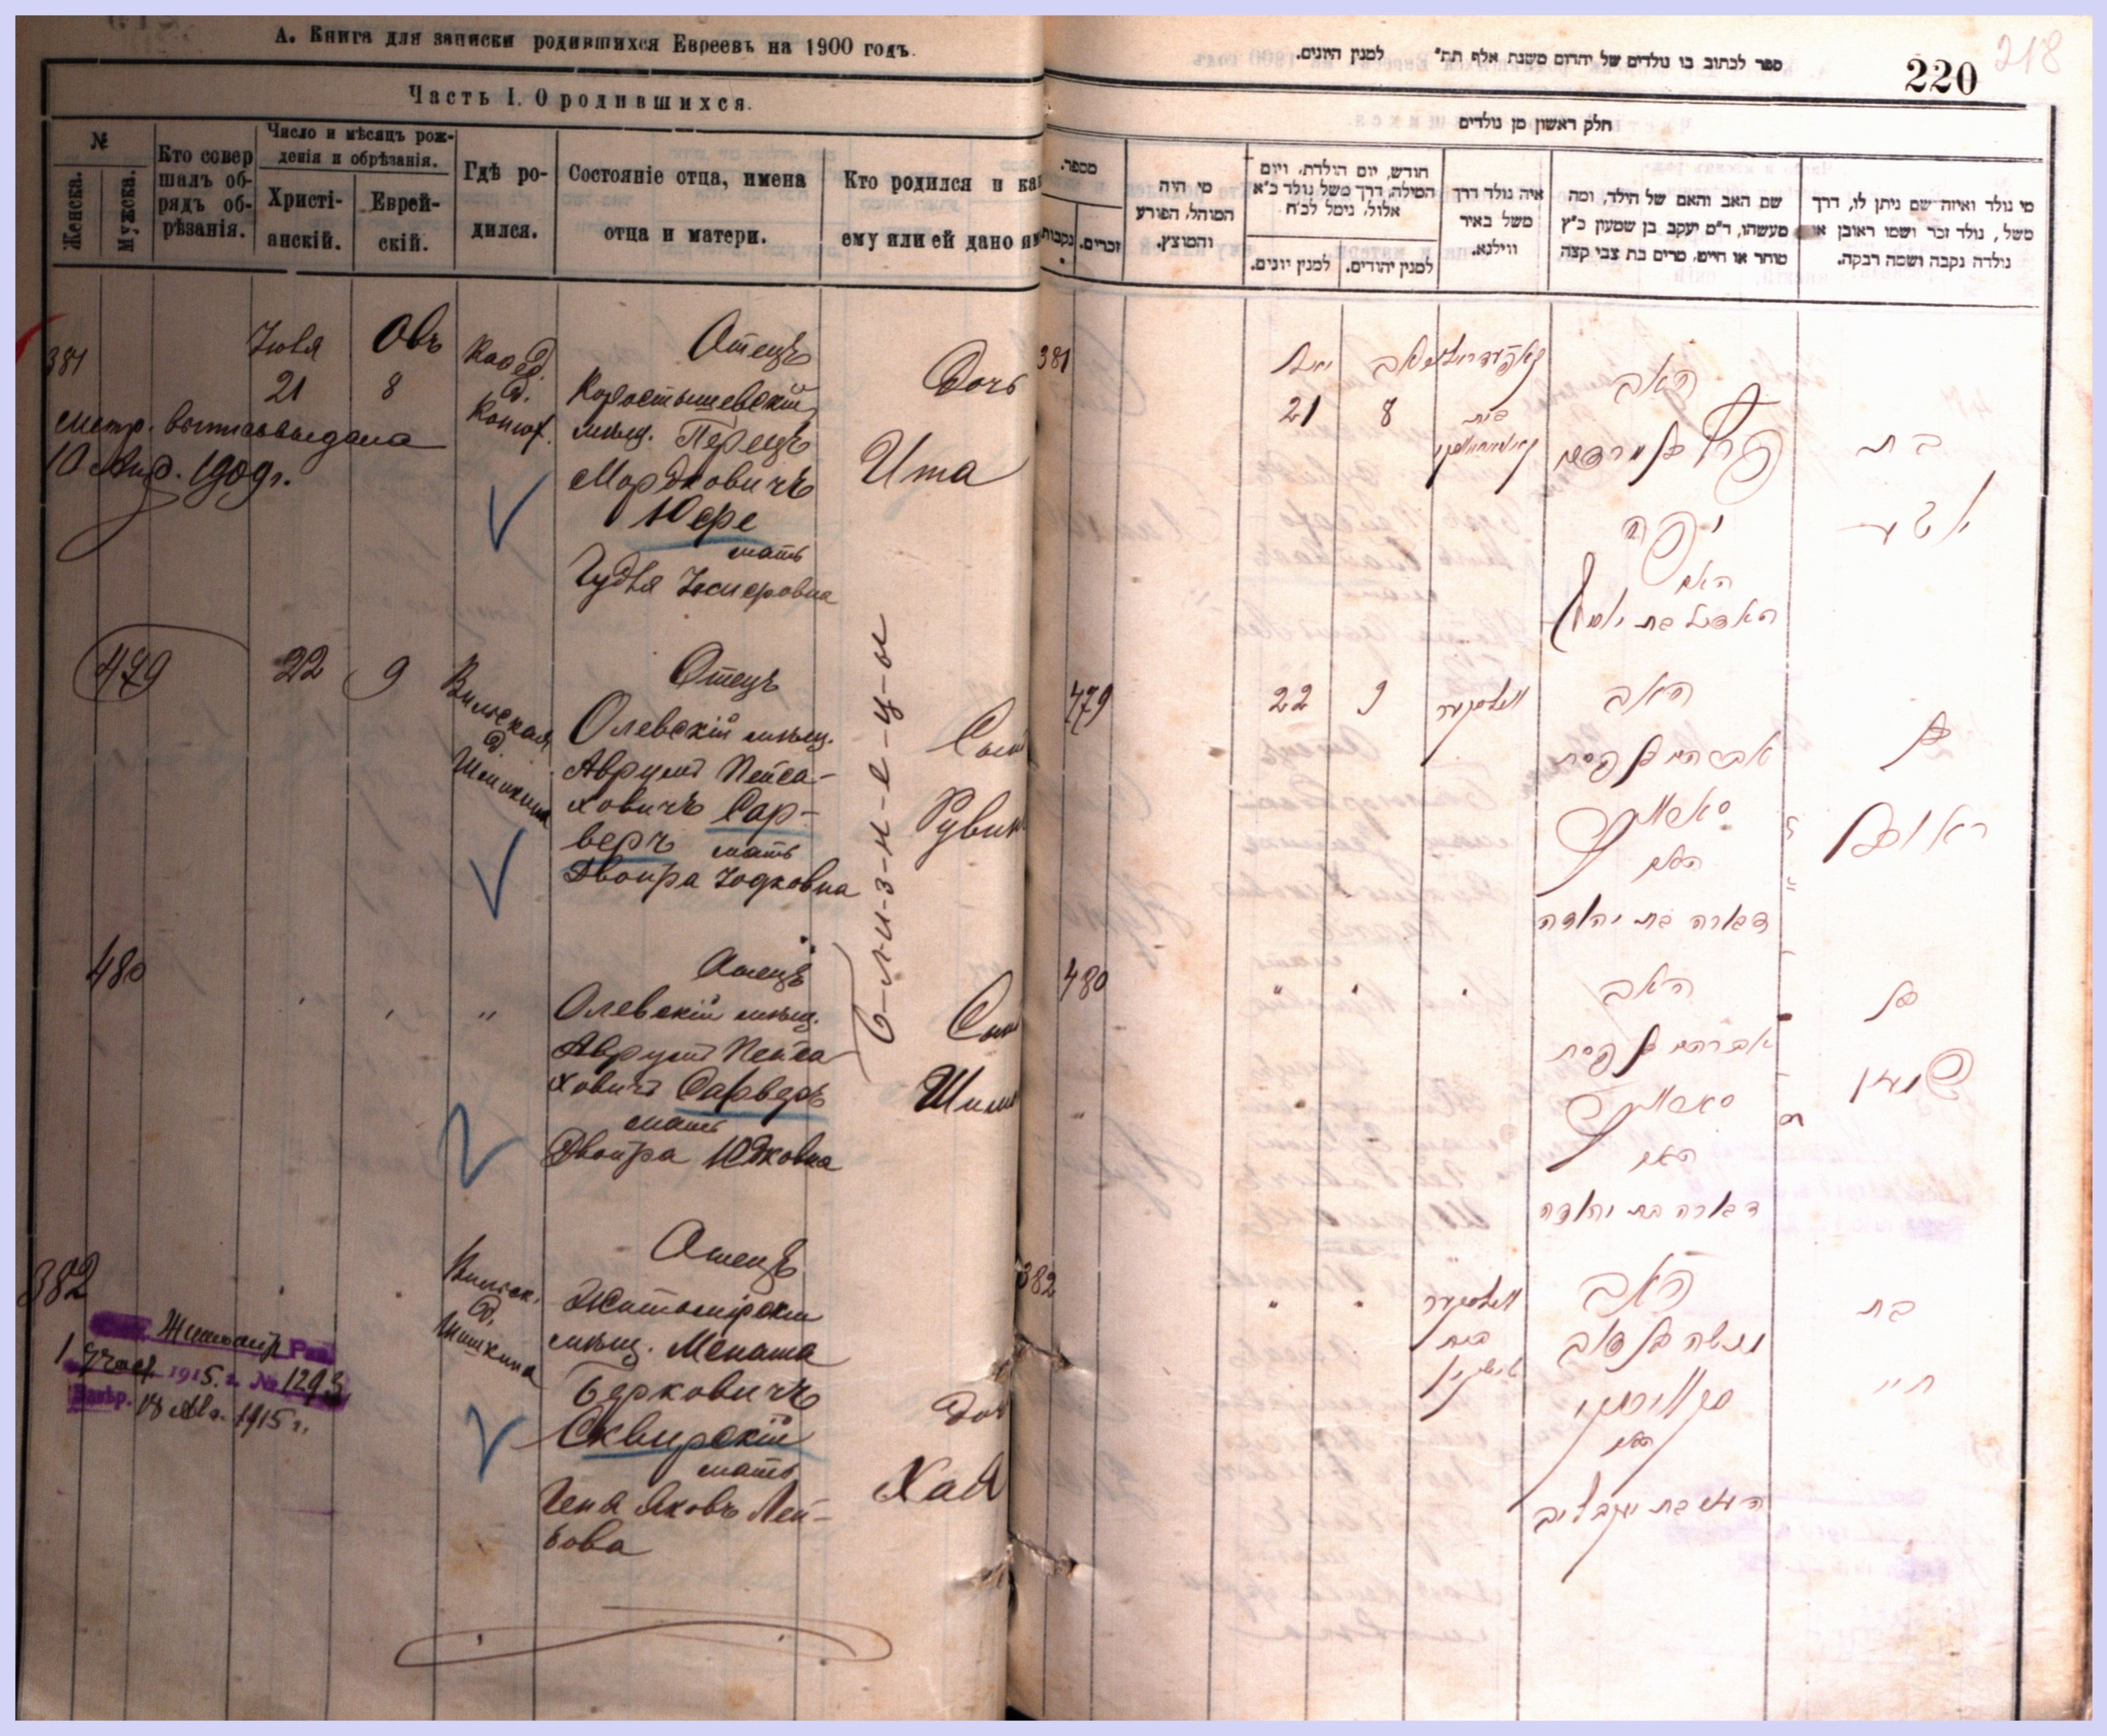 А. Книга для записки родившихся Евреевъ на 1900 годъ.
Часть I. О родившихся.
№
Женска.
Мужска.
Кто совер
шалъ об-
рядъ об-
рѣзанія.
Число и мѣсяцъ рож-
денія и обрѣзанія.
Христі-
анскій.
Еврей-
скій.
Гдѣ ро-
дился.
Состояніе отца, имена
отца и матери.
Кто родился и ка
ему или ей дано и
381
Іюля
21
Овъ
8
Отецъ
Коростышевскій
мѣщ. Перецъ
Мордковичъ
Юфе
мать
Гудля
Дочь
Ита
метр. выпись выдана
10 1909 г.
479
22
9
Вильская
д.
Шишкина
Отецъ
Олевскій мѣщ.
Аврумъ Пейса-
ховичъ Сар-
веръ мать
Двойра Юдковна
Сын
Рувин
б-л-и-з-н-е-ц-ы
480
"
Отецъ
Олевскій мѣщ.
Аврумъ Пейса-
ховичъ Сарверъ
мать
Двойра Юдковна
Сын
Шим
382
Вильск.
д.
Шишкина
Отецъ
Житомірскій
мѣщ. Менаша
Берковичъ
Сквирскій
мать
Геня Яковъ Лей-
бова
Доч
Хая
Житомир
1 1915 г. № 1293
18 1915 г.
ספר לכתוב בו נולדים של יהדום משנת אלף תת״ למנין היונים.
220
218
חלק ראשון מן נולדים
מספר.
נקבות
זכרים.
מי היה
המוהל, הפורע
והמוצץ.
חודש, יום הולדת, ויום
המילה, דרך משל נולד כ״א
אלול, נימל לכ״ח
למנין יונים.
למנין יהודים.
איה נולד דרך
משל באיר
ווילנא.
שם האב והאם של הילד, ומה
מעשהו, ד״מ יעקב בן שמעון כ״ץ
סוחר או חייט, מרים בת צבי קצה
מי נולד ואיזה שם ניתן לו, דרך
משל, נולד זכר ושמו ראובן או
נולדה נקבה ושמה רבקה.
381
21
8
האב
פרץ בן מרדכי
יפה
האם
בת
איטע
479
22
9
האב
אברהם בן פסח
האם
דבורה בת יהודה
בן
ראובן
480
"
האב
אברהם בן פסח
האם
דבורה בת יהודה
בן
שמעון
382
"
האב
מנשה בן דוב
האם
בת
חיי